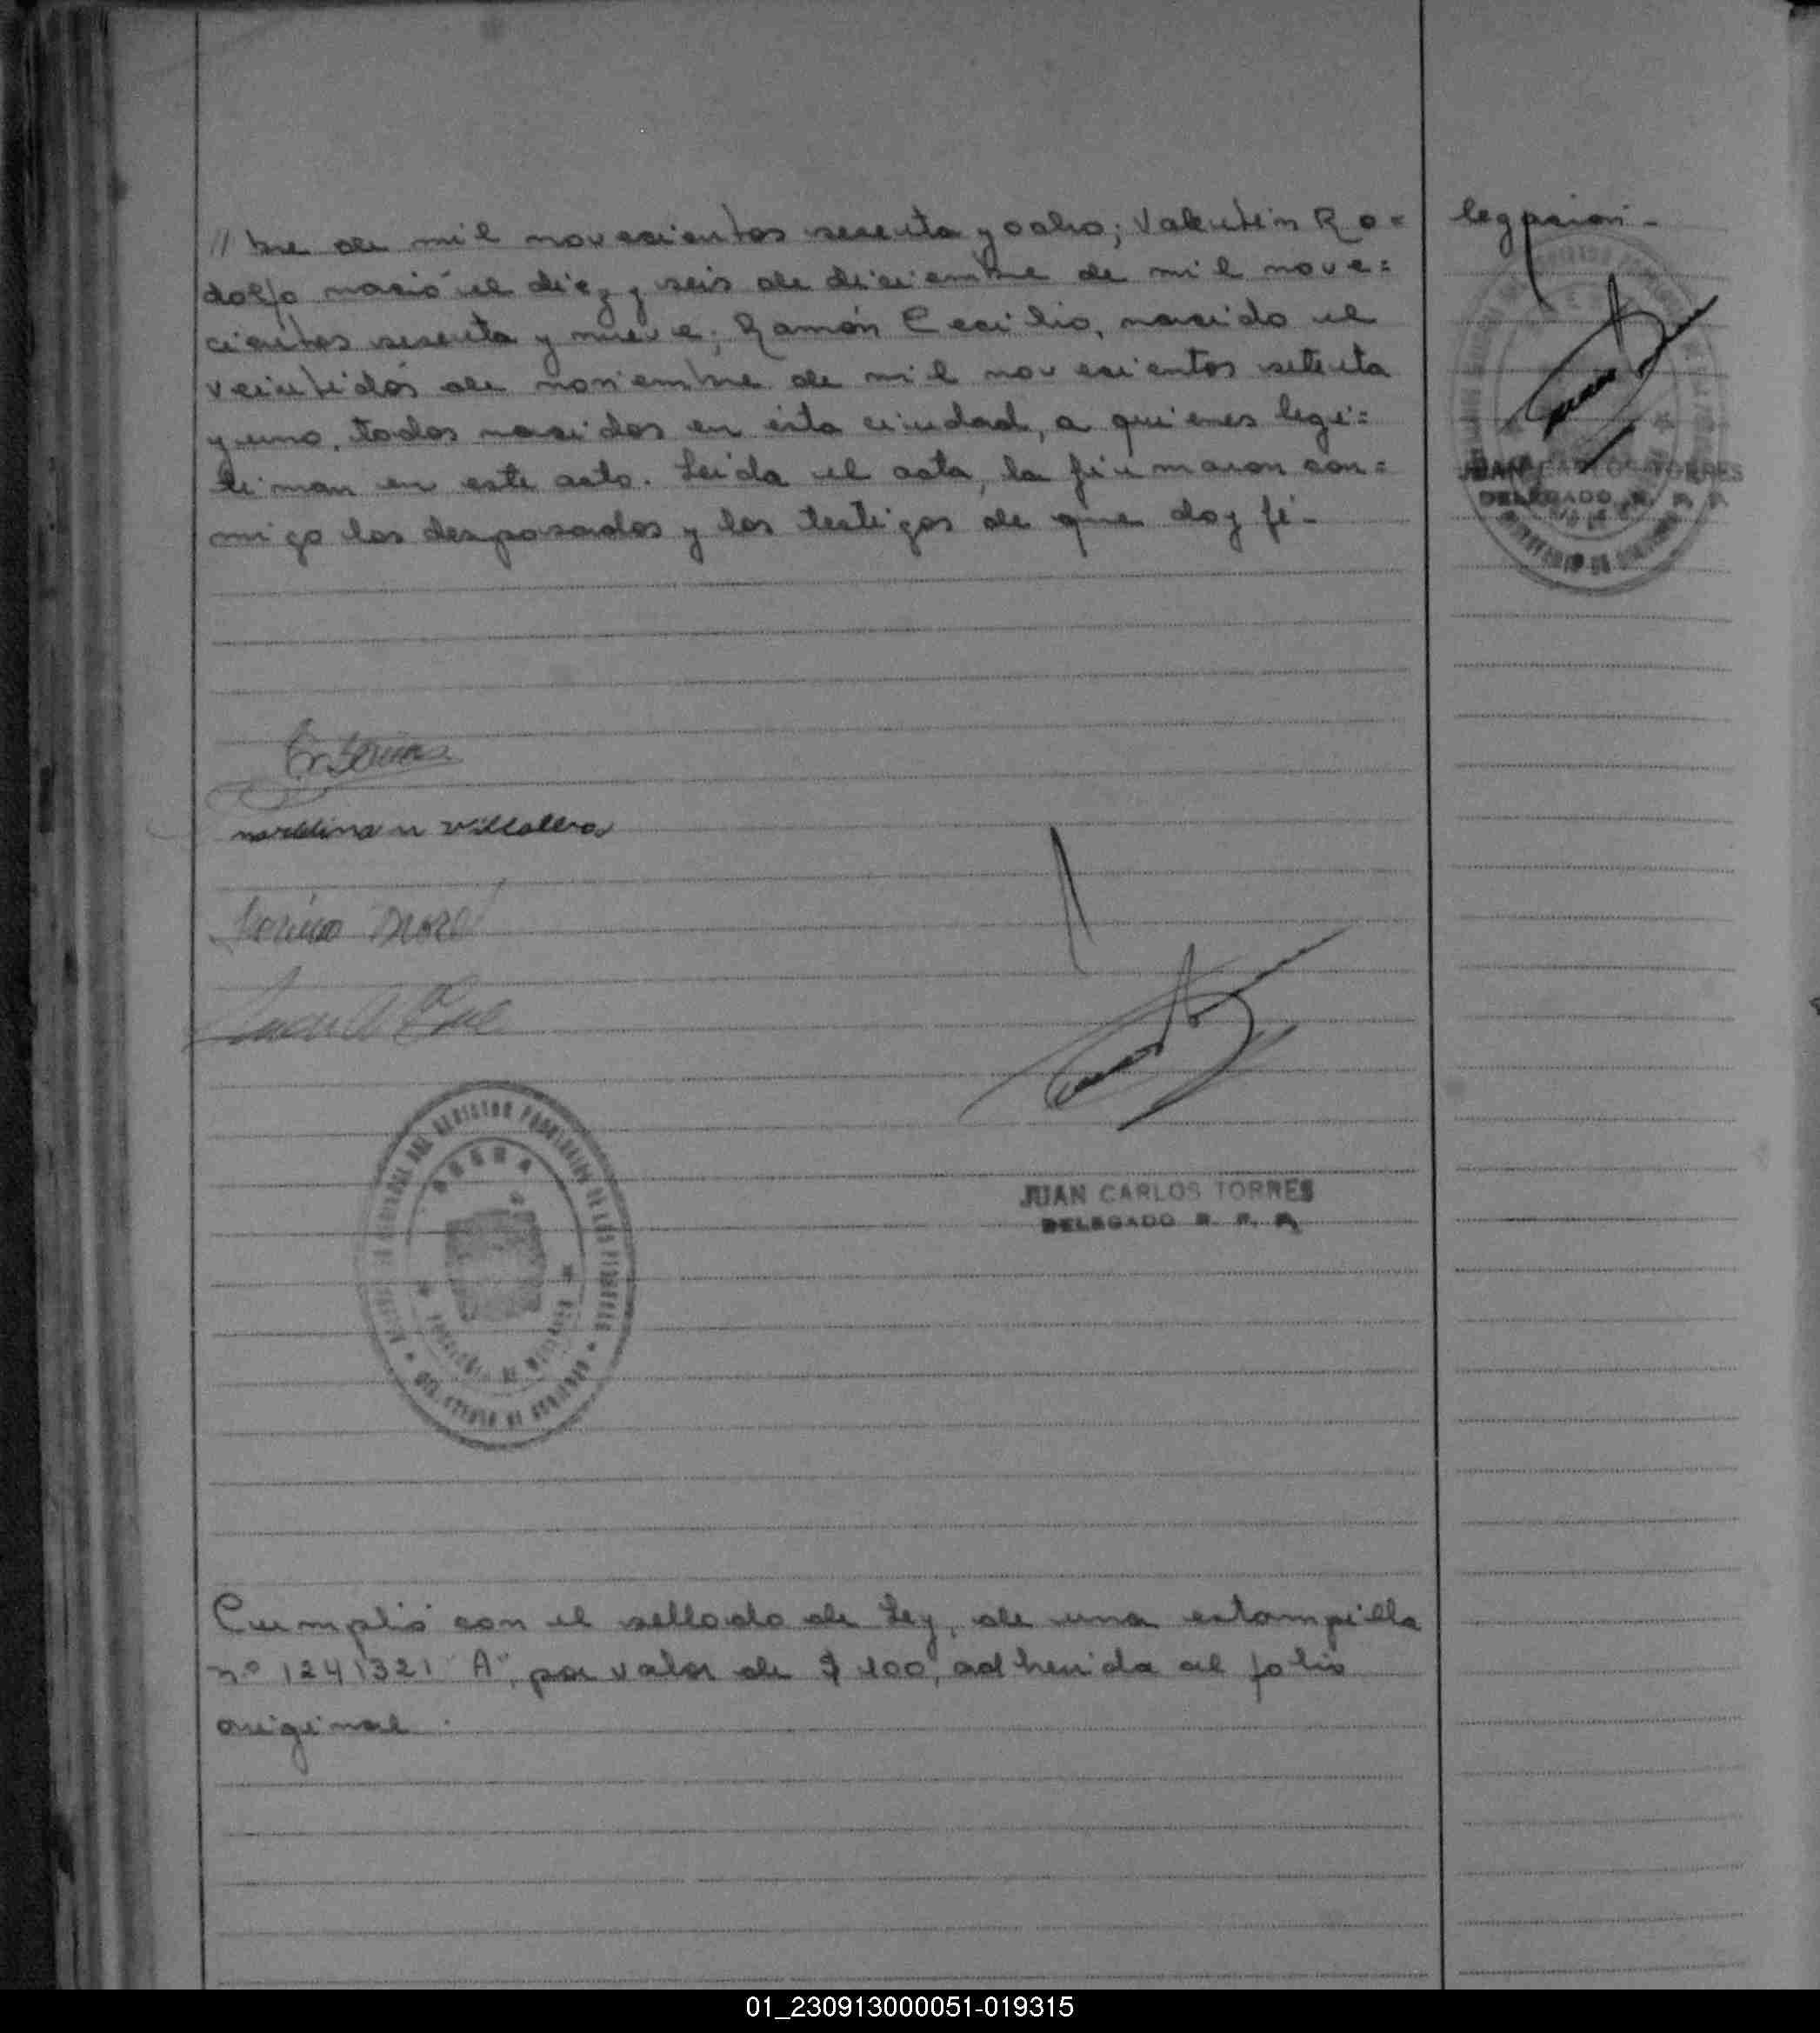 // bre de mil novecientos sesenta y ocho; Valentín Ro=
dolfo nació el diez y seis de diciembre de mil nove=
cientos sesenta y nueve; Ramón Cecilio, nacido el
veintidós de noviembre de mil novecientos setenta
y uno, todos nacidos en ésta ciudad, a quienes legi=
timan en este acto. Leída el acta, la firmaron con=
migo los desposados y los testigos de que doy fé-
JUAN CARLOS TORRES
DELEGADO R. P. P.
villalba
JUAN CARLOS TORRES
DELEGADO R. P. P.
Cumplió con el sellado de Ley, de una estampilla
nº 1241321 "A", por valor de $ 100, adherida al folio
original.
01_230913000051-019315